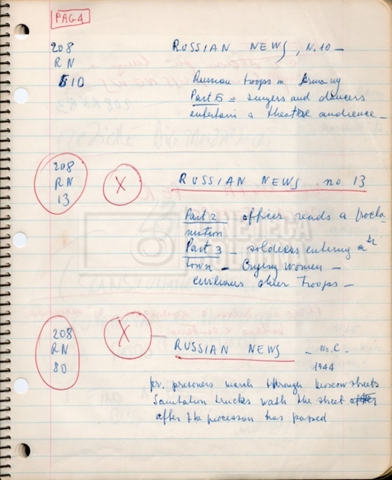 PAG 4
208 RUSSIAN NEWS, N. 10 —
RN
10 Russian troops in
Part 5 = singers and dancers
entertain a theatre audience —
208
RN X RUSSIAN NEWS, no 13
13
Part 2 officer reads a procla-
mation
Part 3 — soldiers entering a
town — Crying women —
civilians cheer troops —
CINETECA
208 X
RN RUSSIAN NEWS — n. C.
80 1944
prisoners march through Moscow streets
Sanitation trucks wash the street
after the procession has passed